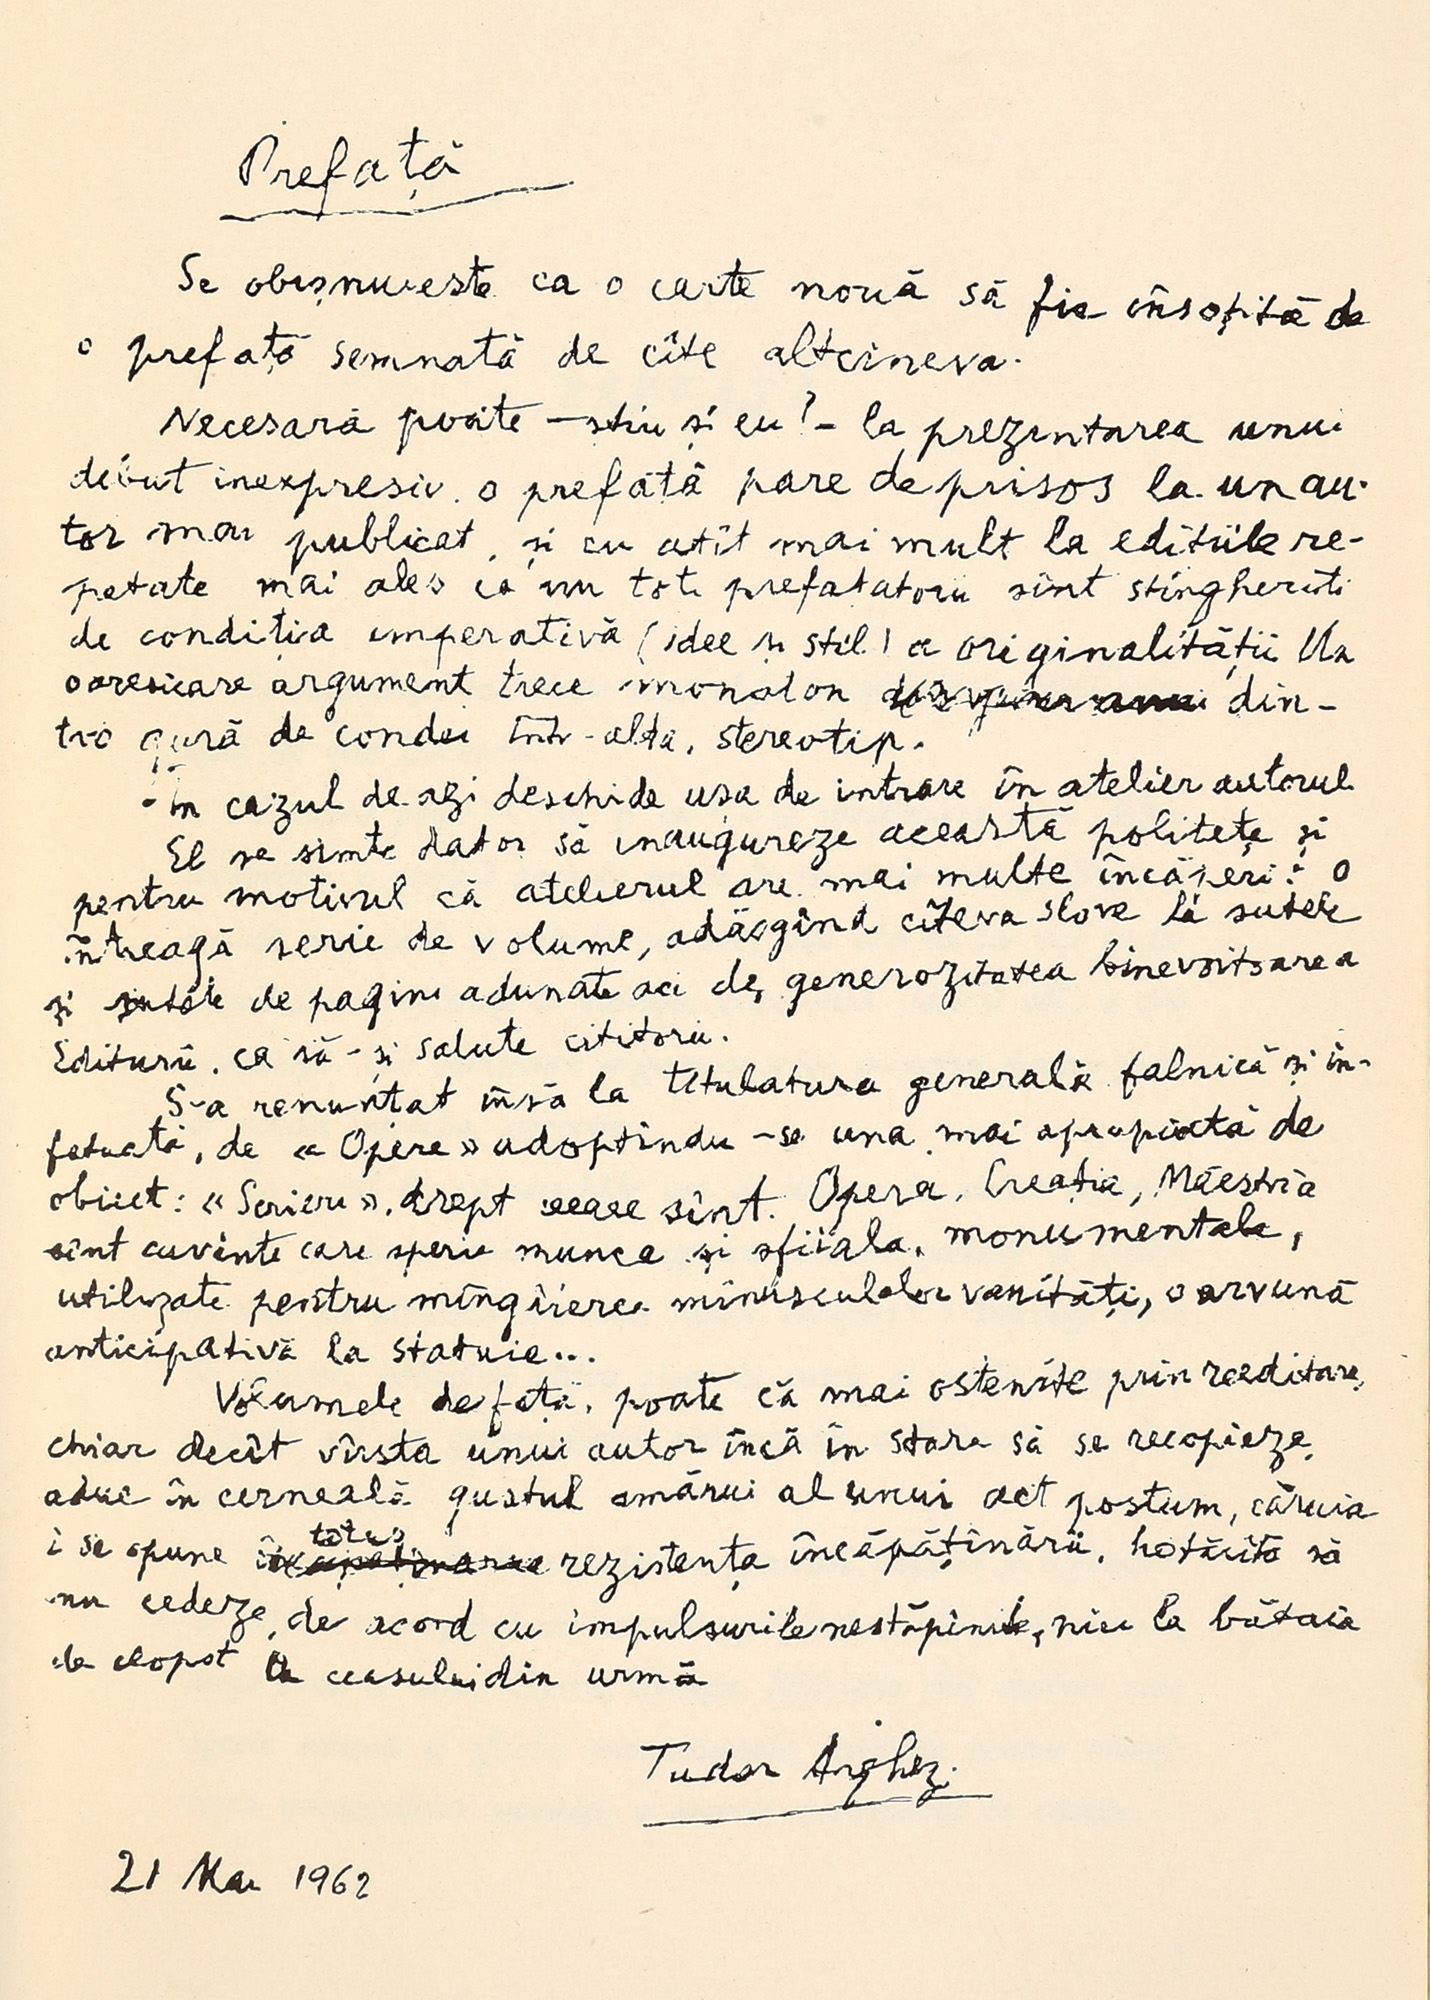 Prefață
Se obișnuește ca o carte nouă să fie însoțită de
o prefață semnată de cîte altcineva.
Necesară poate – știu și eu? – la prezintarea unui
debut inexpresiv, o prefață pare de prisos la un au-
tor mai publicat, și cu atît mai mult la edițiile re-
petate mai ales că nu toți prefațatorii sînt stingheriți
de condiția imperativă (idee și stil) a originalității. Un
oaresicare argument trece monoton din-
tr-o gură de condei într-alta, stereotip.
În cazul de azi deschide ușa de intrare în atelier autorul.
El se simte dator să inaugureze această politețe și
pentru motivul că atelierul are mai multe încăperi: o
întreagă serie de volume, adăogînd cîteva slove la sutele
și sutele de pagini adunate aci de generozitatea binevoitoare a
Editurii, ca să-și salute cititorii.
S-a renunțat însă la titulatura generală falnică și în-
fatuată, de «Opere» adoptîndu-se una mai apropiată de
obiect: «Scrieri», drept ceeace sînt. Opera, Creația, Măestria
sînt cuvinte care sperie munca și sfiiala, monumentale,
utilizate pentru mîngîierea minusculelor vanități, o arvună
anticipativă la statuie...
Volumele de față, poate că mai ostenite prin reeditare,
chiar decît vîrsta unui autor încă în stare să se recopieze,
aduc în cerneală gustul amărui al unui act postum, căruia
i se opune totuș rezistența încăpățînării, hotărîtă să
nu cedeze, de acord cu impulsurile nestăpînite, nici la bătaia
de clopot a ceasului din urmă
Tudor Arghezi
21 Mai 1962